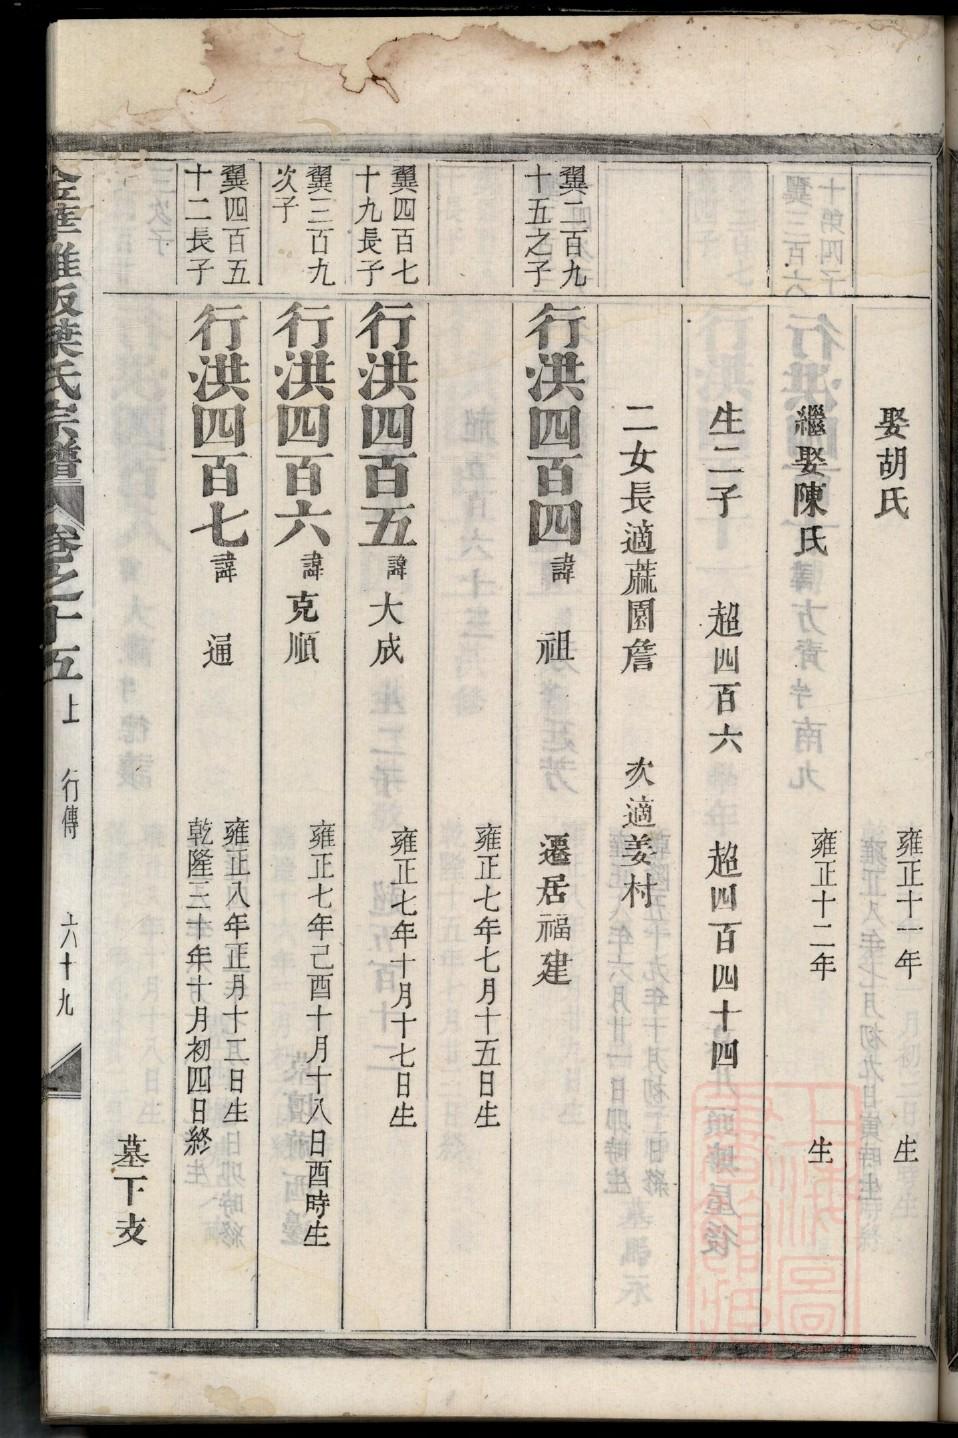 娶胡氏 雍正十一年 生
繼娶陳氏 雍正十二年 生
生二子 超四百六 超四百四十四
二女長適蔴園詹 次適姜村
翼二百九十五之子 行洪四百四 諱 祖 遷居福建
雍正七年七月十五日生
翼四百七十九長子 行洪四百五 諱大成 雍正七年十月十七日生
翼三百九次子 行洪四百六 諱克順 雍正七年己酉十月十八日酉時生
翼四百五十二長子 行洪四百七 諱 通 雍正八年正月十二日生
乾隆三十年十月初四日終
墓下支
金華雅畈葉氏宗譜 卷之十五上 行傳 六十九